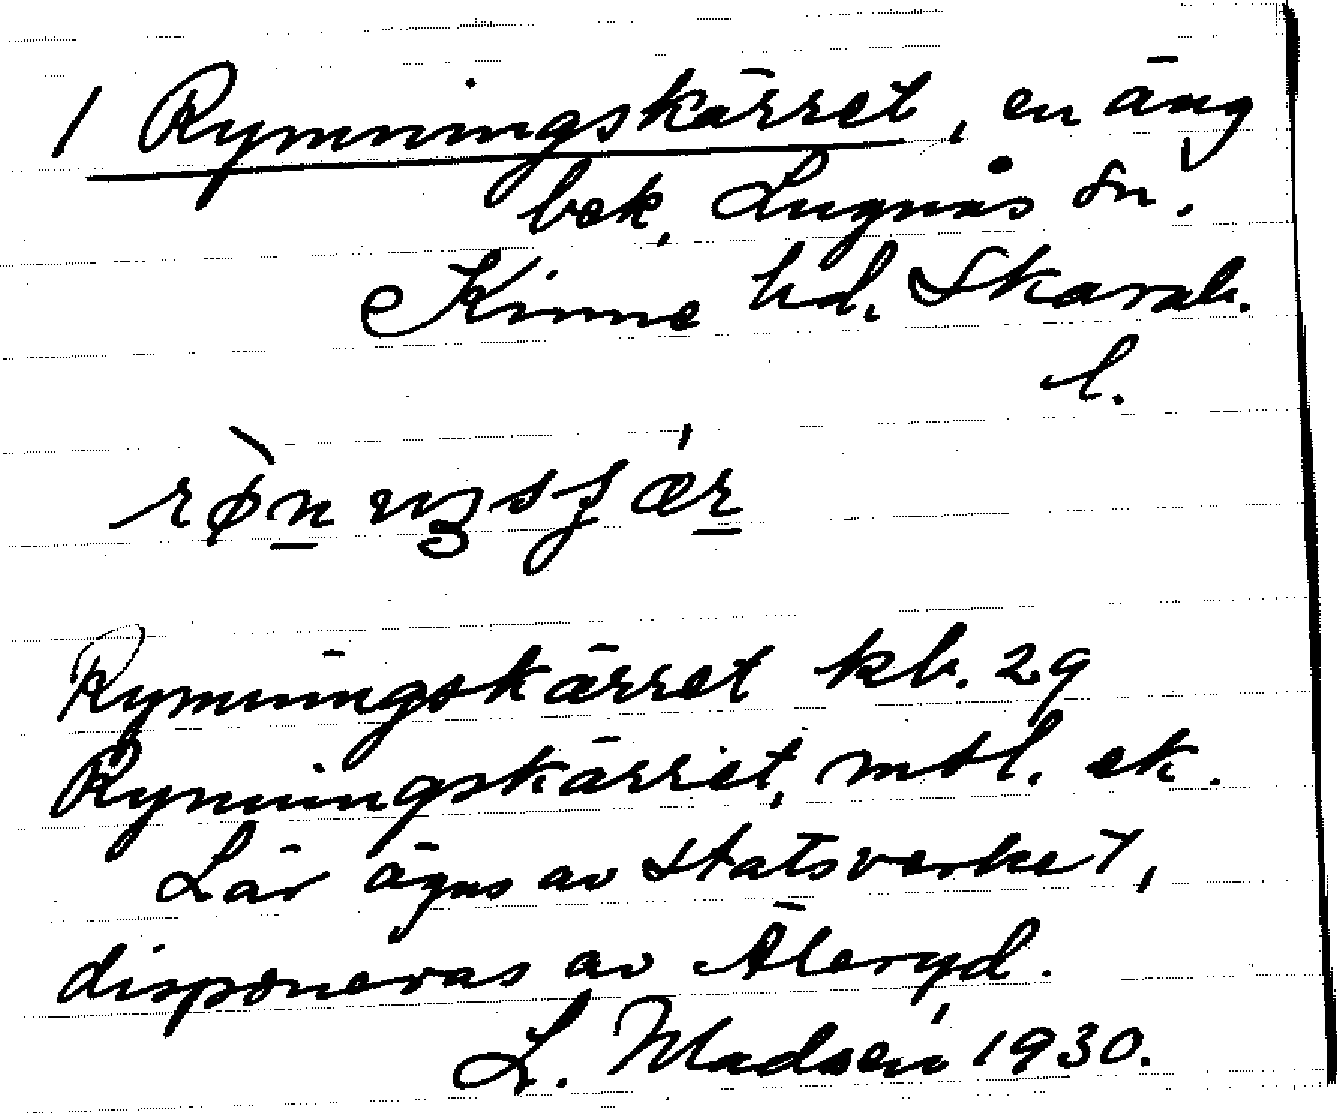 1 Rymningskärret, en äng
bek, Lugnås sn.
Kinne hd. Skarab.
l.
Rymningskärret kb. 29
Rymningskärret, mtl. ek.
Lär ägas av Statsverket,
disponeras av Äleryd.
L. Madsén 1930.